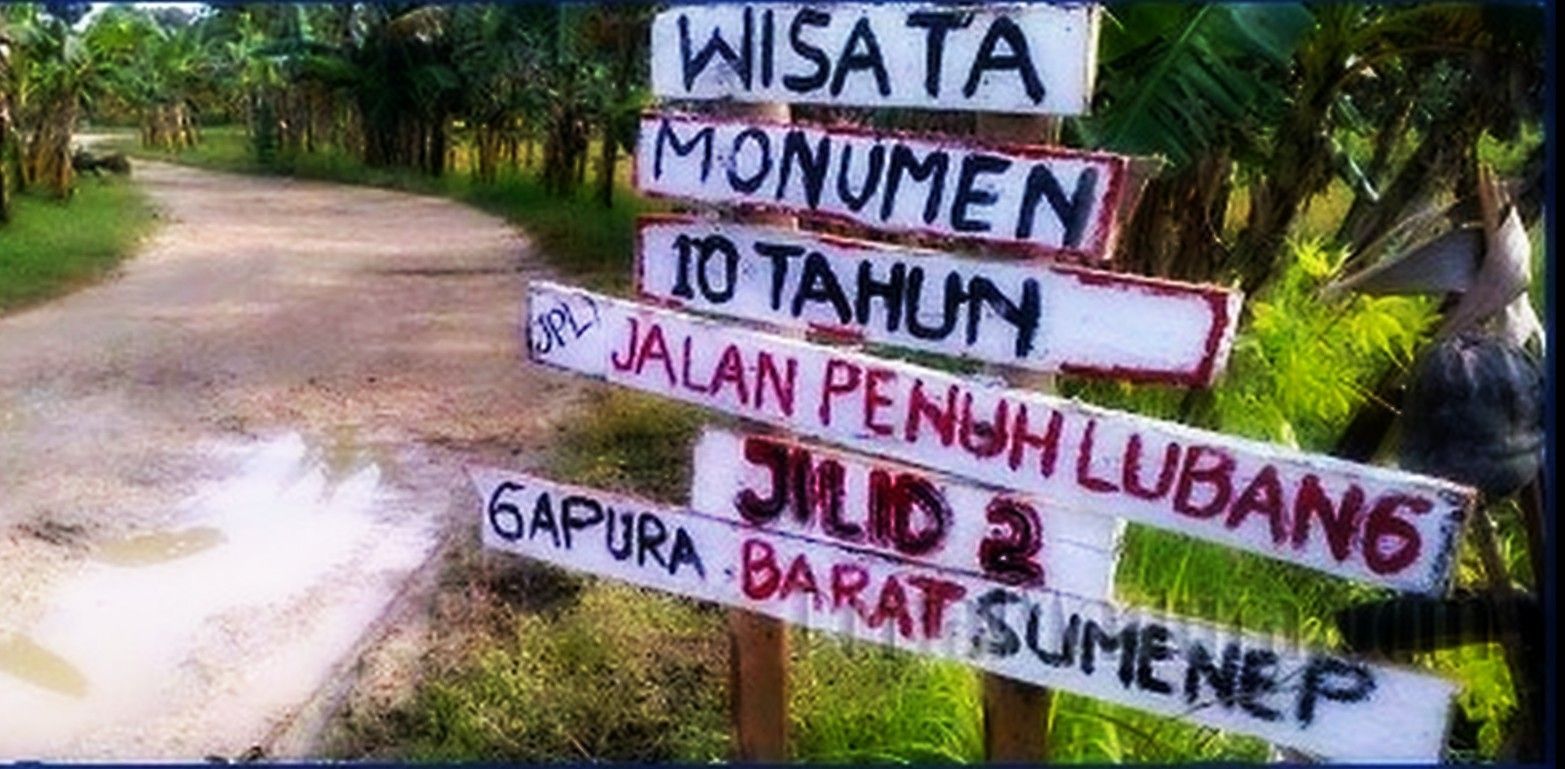 WISATA
MONUMEN
10 TAHUN
(JPL) JALAN PENUH LUBANG
JILID 2
GAPURA . BARAT SUMENEP